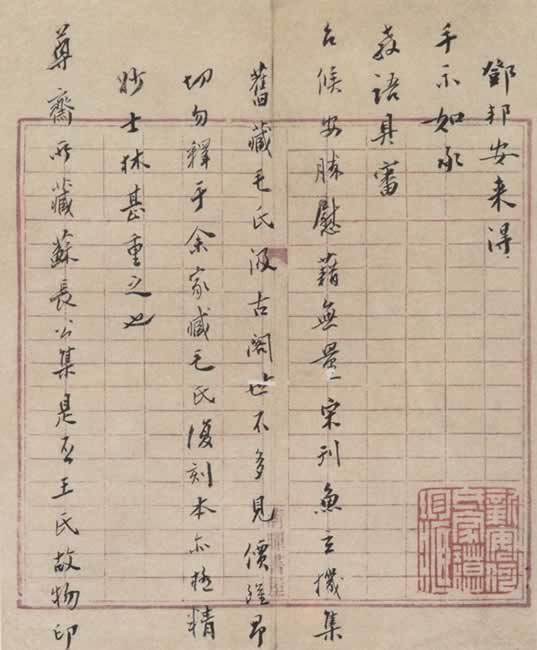 鄧邦安来得
手示如承
教語具審
台候安勝慰藉無量宋刊魚玄機集
舊藏毛氏汲古閣世不多見價雖昂
切勿釋手余家藏毛氏復刻本亦極精
妙士林甚重之也
尊齋所藏蘇長公集是否王氏故物印